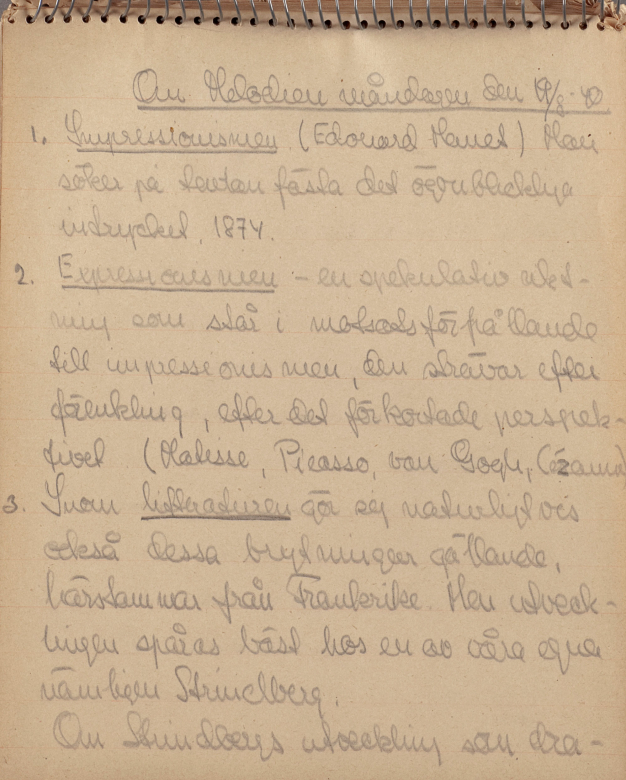 Om Melodien måndagen den 19/8-40
1. Impressionismen (Edouard Manet) Han
söker på tavlan fästa det ögonblickliga
intrycket, 1874.
2. Expressionismen - en spekulativ rikt-
ning som står i motsatsförhållande
till impressionismen, den strävar efter
förenkling, efter det förkortade perspek-
tivet (Matisse, Picasso, van Gogh, Cézanne)
3. Inom litteraturen gör sig naturligtvis
också dessa brytningar gällande,
härstammar från Frankrike. Men utveck-
lingen spåras bäst hos en av våra egna
nämligen Strindberg.
Om Strindbergs utveckling som dra-